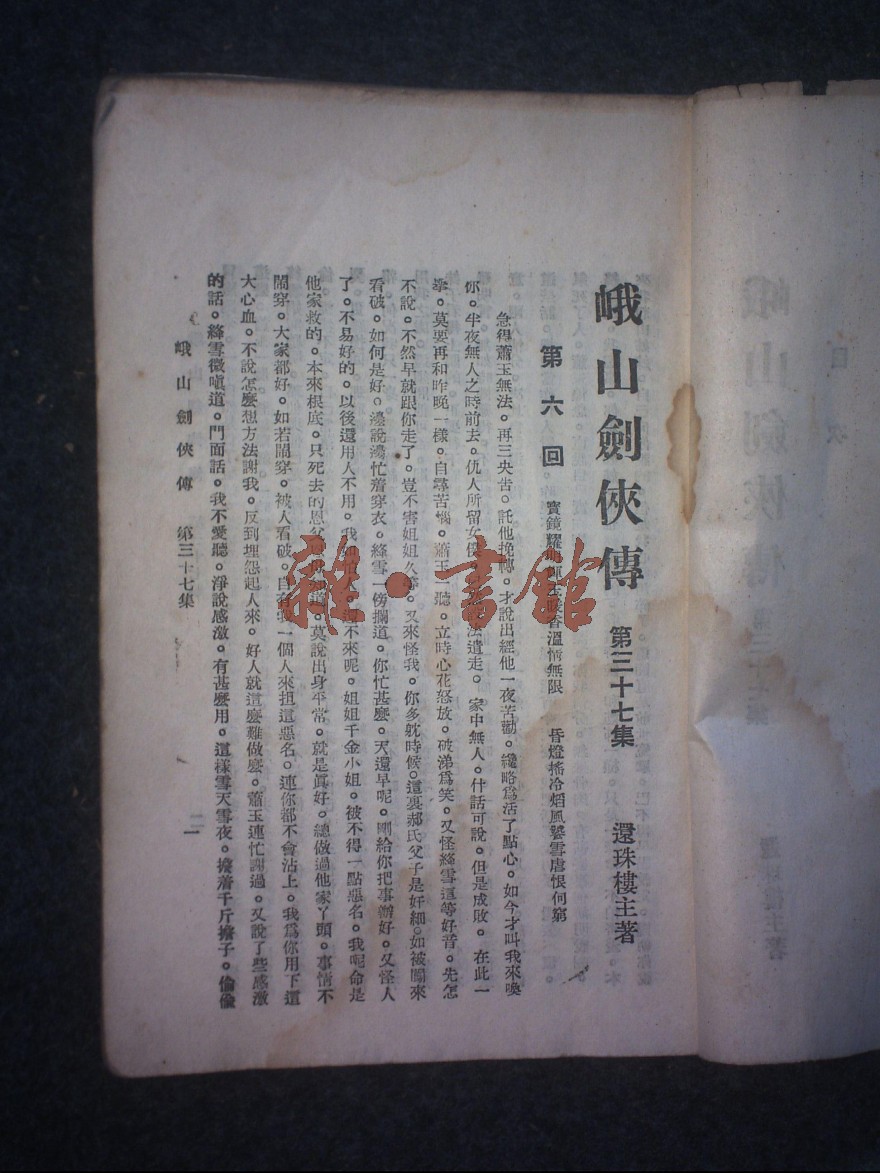 峨山劍俠傳 第三十七集 還珠樓主著
第六回 寶鏡耀 香溫情無限 昏燈搖冷焰風饕雪虐恨何窮
急得蕭玉無法。再三央告。託他挽轉。才說出經他一夜苦勸。纔略爲活了點心。如今才叫我來喚
你。半夜無人之時前去。仇人所留女僕 設法遣走。家中無人。什話可說。但是成敗。在此一
舉。莫要再和昨晚一樣。自尋苦惱。蕭玉一聽。立時心花怒放。破涕爲笑。又怪絳雪這等好音。先怎
不說。不然早就跟你走了。豈不害姐姐久等。又來怪我。你多躭時候。這裏郝氏父子是奸細。如被闖來
看破。如何是好。邊說邊忙着穿衣。絳雪一傍攔道。你忙甚麽。天還早呢。剛給你把事辦好。又怪人
了。不易好的。以後還用人不用。我 不來呢。姐姐千金小姐。被不得一點惡名。我呢命是
他家救的。本來根底。只死去的恩父 知道。莫說出身平常。就是眞好。總做過他家丫頭。事情不
鬧穿。大家都好。如若鬧穿。被人看破。自有我一個人來担這惡名。連你都不會沾上。我爲你用下這
大心血。不說怎麽想方法謝我。反到埋怨起人來。好人就這麽難做麽。蕭玉連忙謝過。又說了些感激
的話。絳雪微嗔道。門面話。我不愛聽。淨說感激。有甚麽用。這樣雪天雪夜。擔着千斤擔子。偷偷
峨山劍俠傳 第三十七集 一
雜·書館